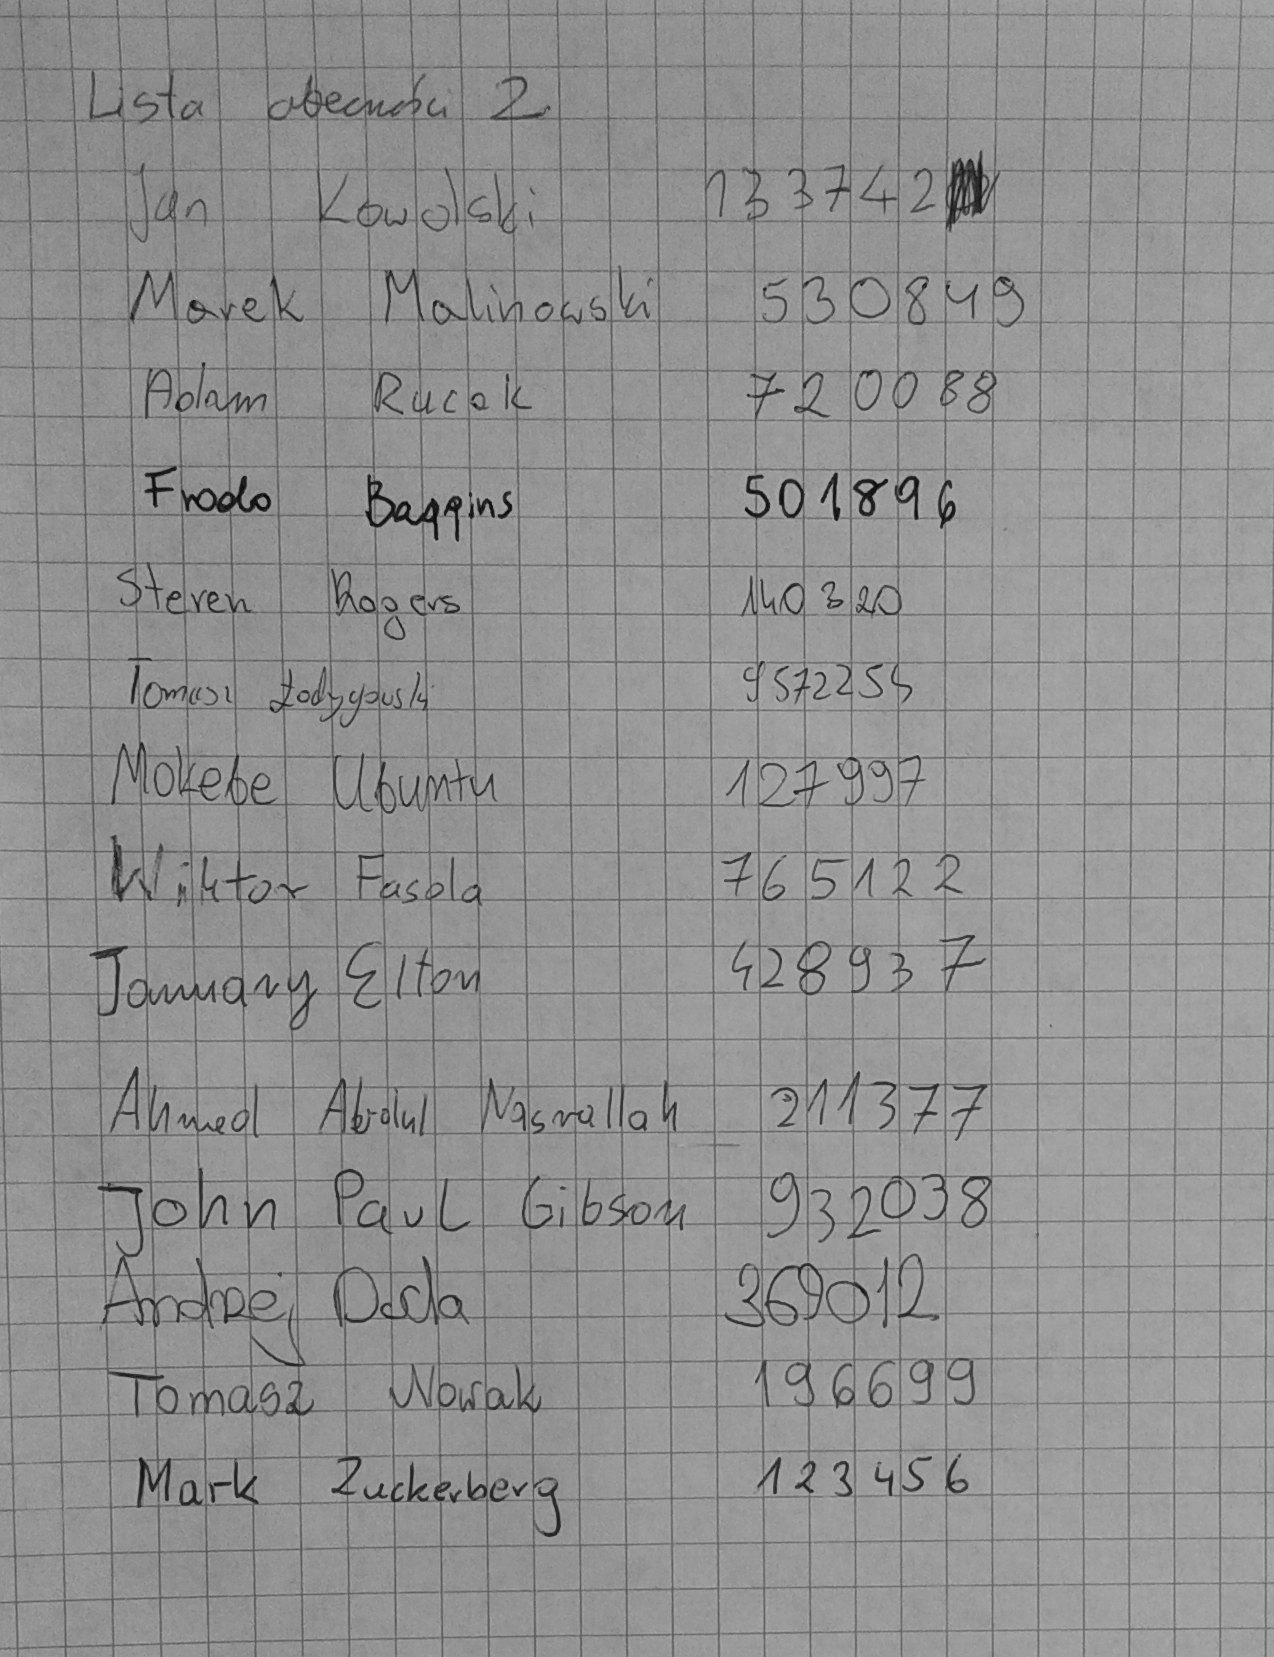 Lista obecności 2
Jan Kowalski 133742
Marek Malinowski 530849
Adam Rucak 720088
Frodo Baggins 501896
Steven Rogers 140320
Tomasz 
Mokebe Ubuntu 127997
Wiktor Fasola 765122
January Elton 428937
Ahmed Abdul Nasrallah 211377
John Paul Gibson 932038
Andrzej Duda 369012
Tomasz Nowak 196699
Mark Zuckerberg 123456